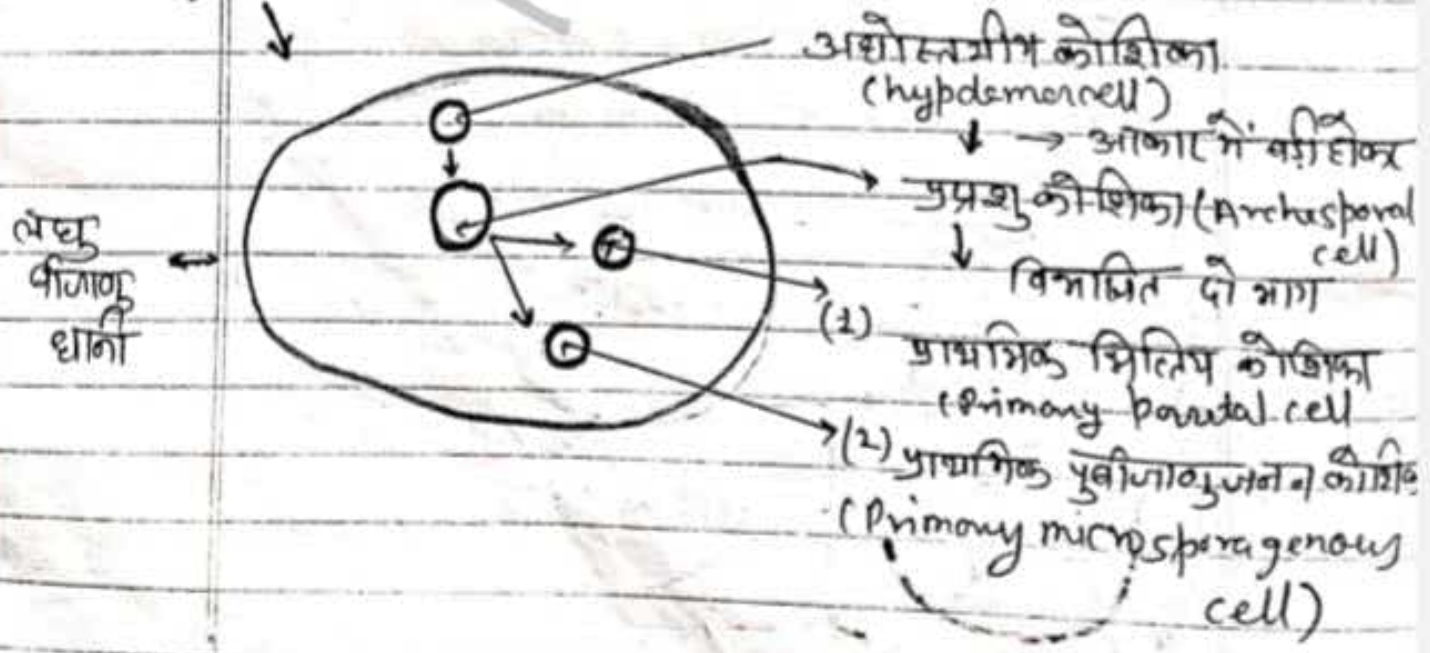 अधोस्तरीय कोशिका
(hypdemorcell)
→ आकार में बड़ी होकर
प्रप्रशु कोशिका (Archesporal
cell)
विभाजित दो भाग
लघु
बीजाणु
धानी
(1)
प्राथमिक भित्तिय कोशिका
(Primary parietal cell
(2) प्राथमिक पुबीजाणुजनन कोशिक
(Primary microsporagenous
cell)